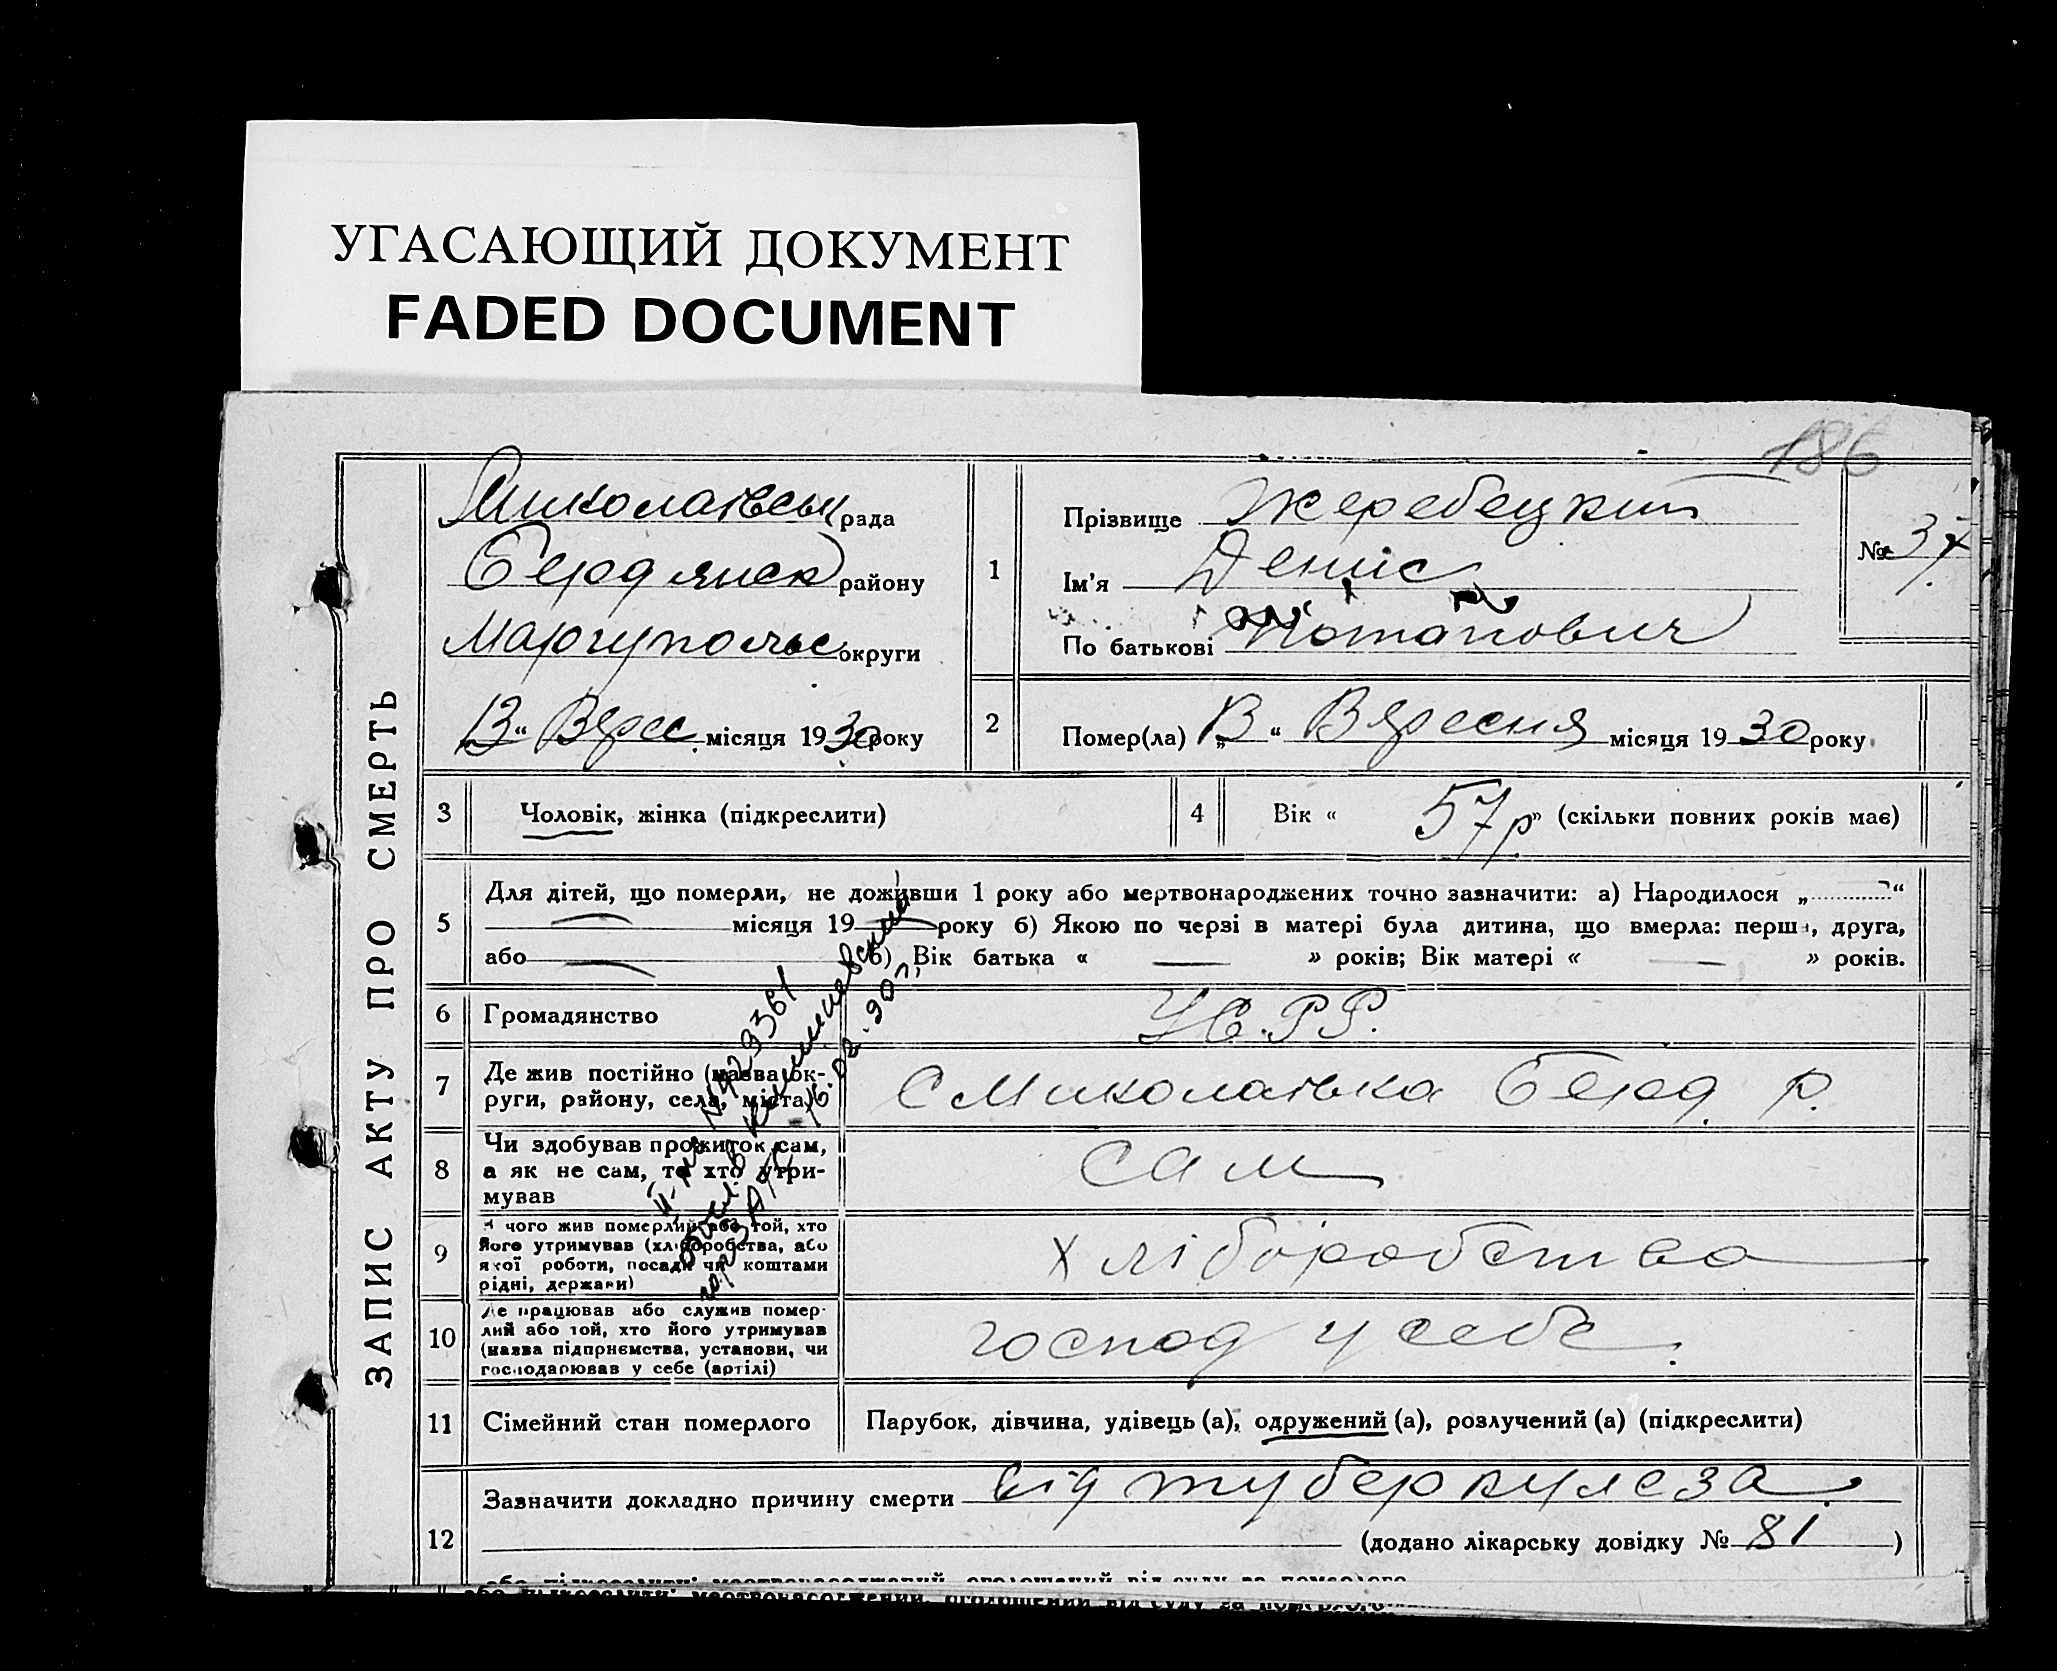 УГАСАЮЩИЙ ДОКУМЕНТ
FADED DOCUMENT
186
ЗАПИС АКТУ ПРО СМЕРТЬ
Миколаївськ рада
Бердянск району
Маріупольс округи
13 " Верес місяця 1930 року
1
Прізвище Жеребецкий
Ім'я Деніс
По батькові Потапович
№ 37
2
Помер(ла) „ 13 “ Вересня місяця 1930 року
3
Чоловік, жінка (підкреслити)
4
Вік « 57 р » (скільки повних років має)
5
Для дітей, що померли, не доживши 1 року або мертвонароджених точно зазначити: а) Народилося „ “
місяця 19 року б) Якою по черзі в матері була дитина, що вмерла: перша, друга,
або в) Вік батька « » років; Вік матері « » років.
6
Громадянство
У.С.Р.Р.
7
Де жив постійно (назва ок-
руги, району, села, міста)
С Миколаївка Берд. р.
8
Чи здобував прожиток сам,
а як не сам, то хто утри-
мував
сам
9
З чого жив померлий або той, хто
його утримував (хліборобства, або
якої роботи, посади чи коштами
рідні, держави)
хліборобство
10
Де працював або служив помер-
лий або той, хто його утримував
(назва підприємства, установи, чи
господарював у себе (артілі)
господ у себе.
№ 429361
16.02.90 г.
11
Сімейний стан померлого
Парубок, дівчина, удівець (а), одружений (а), розлучений (а) (підкреслити)
12
Зазначити докладно причину смерти від туберкулеза
(додано лікарську довідку № 81 )